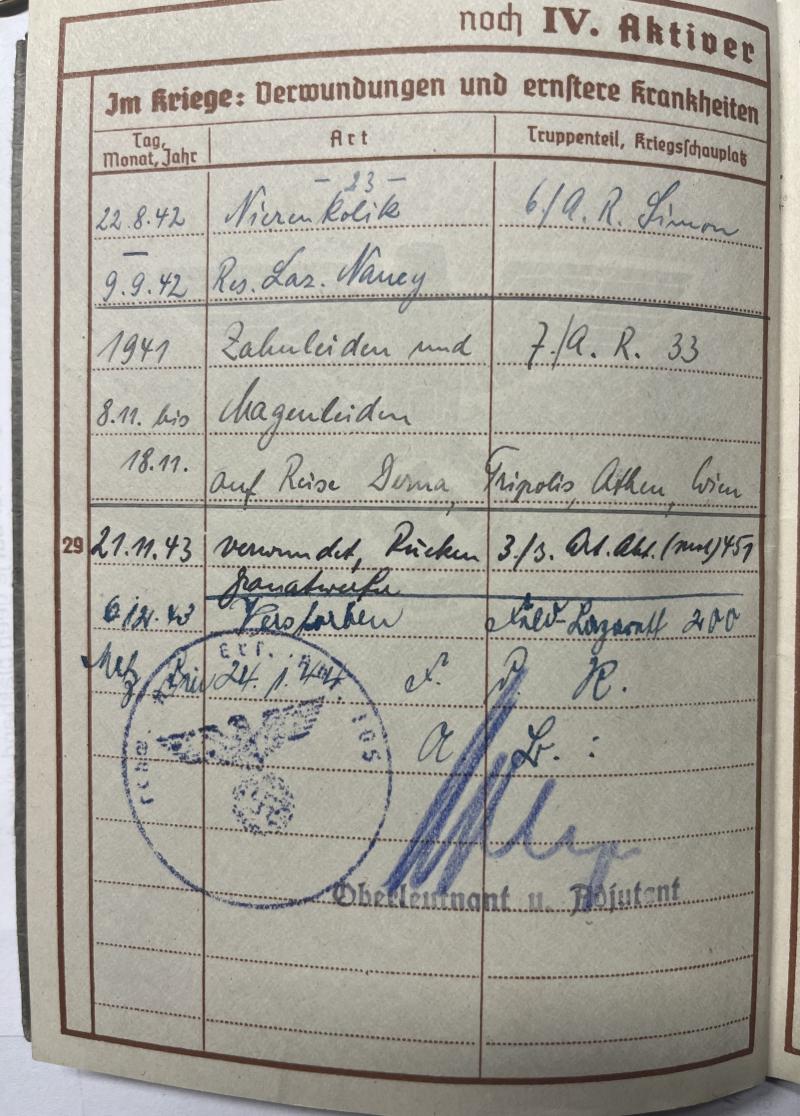 noch IV. Aktiver
Im Kriege: Verwundungen und ernstere Krankheiten
Tag, Monat, Jahr
Art
Truppenteil, Kriegsschauplatz
- 23 -
22.8.42 Nierenkolik 6./A. R. Simon
–
9.9.42 Res. Laz. Nancy
1941 Zahnleiden und 7./A. R. 33
8.11. bis Magenleiden
18.11.
auf Reise Derna, Tripolis, Athen, Wien
29 21.11.43 verwundet, Rücken 3./s. Art. Abt. (mot) 451
Granatwerfer
6.12.43 Verstorben Feld-Lazarett 200
Metz, 24. 1. 44 F. d. R.
Ers. 105
A B. :
Oberleutnant u. Adjutant